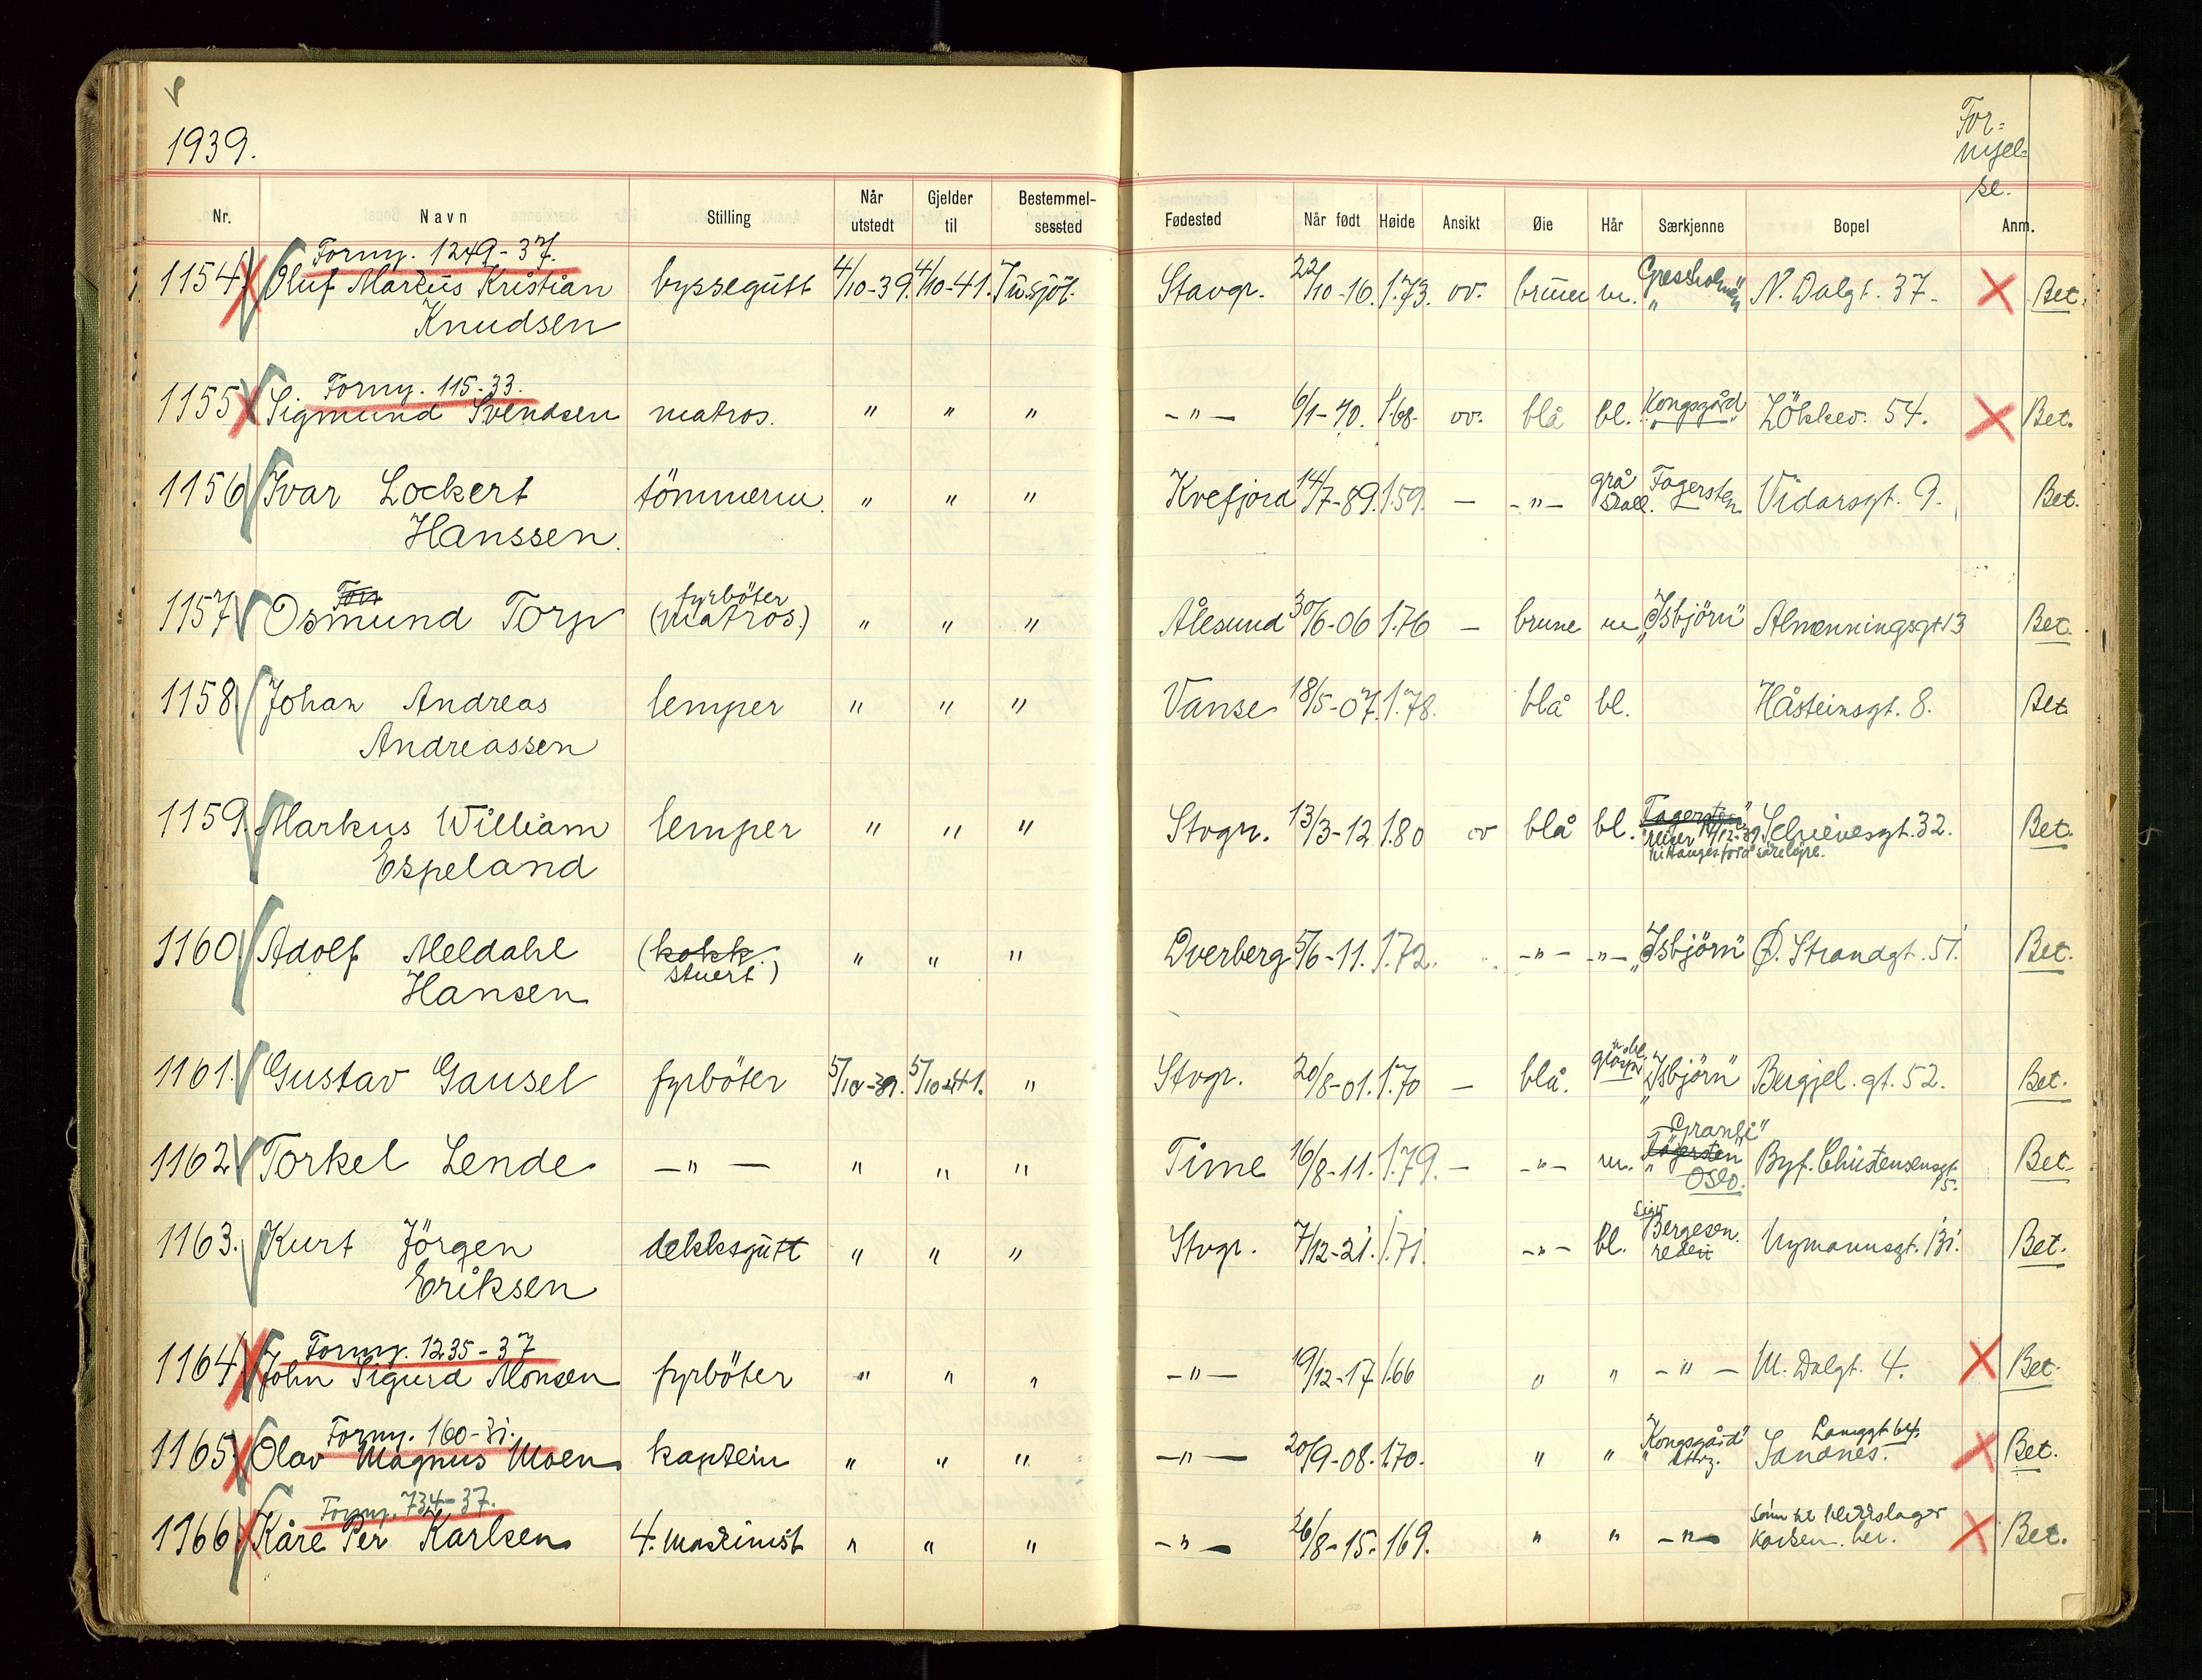 1939.
For=
nyel=
se.
Nr. Navn Stilling Når utstedt Gjelder til Bestemmel-sessted Fødested Når født Høide Ansikt Øie Hår Særkjenne Bopel Anm.
Forny. 1249-37.
1154 Oluf Markus Kristian byssegutt 4/10-39. 4/10-41. Tils sjös. Stavgr. 22/10-16. 1.73. ov. brune m. "Gressholmen" N. Dalgt. 37. Bet.
Knudsen
Forny. 115-33.
1155 Sigmund Svendsen matros. " " " -"- 6/1-70. 1.68. ov. blå bl. "Kongsgård" Lökkev. 54. Bet.
1156 Ivar Lockert tömmerm. " " " Kvefjord 14/7-89. 1.59. - -"- grå Fagersten Vidarsgt. 9. Bet.
Hanssen.
fyrböter
1157 Osmund Torp (matros.) " " " Ålesund 30/6-06 1.76 - brune m "Isbjörn" Almenningsgt 13 Bet.
1158 Johan Andreas lemper " " " Vanse 18/5-07. 1.78. blå bl. Håsteinsgt. 8. Bet.
Andreassen
1159. Markus William lemper " " " Stvgr. 13/3-12 1.80 ov blå bl. Fagersten" Schievesgt. 32. Bet.
Espeland
1160. Adolf Meldahl (kokk. " " " Dverberg 5/6-11. 1.72. -"- -"- "Isbjörn" Ø. Strandgt. 51. Bet.
Hansen stuert)
1161. Gustav Gausel fyrböter 5/10-39. 5/10-41. " Stvgr. 20/8-01. 1.70 - blå. "Isbjörn" Bergjel. gt. 52. Bet.
"Granli"
1162 Torkel Lende -"- " " " Time 16/8-11. 1.79. - -"- m. "Fagersten" Byf. Christensensgt. Bet.
Oslo. 15.
1163. Kurt Jörgen dekksgutt " " " Stvgr. 7/12-21. 1.71. -"- bl. Sigv. Bergesen. Nymannsgt. 131. Bet.
Eriksen rederi
Forny. 1235-37
1164 John Sigurd Monsen fyrböter " " " -"- 19/12-17 1.66 " " -"- M. Dalgt. 4. Bet.
Forny. 160-31.
1165 Olav Magnus Moen kaptein " " " -"- 20/9-08. 1.70. " " "Kongsgård" Langgt 64. Bet.
Sandnes.
Forny. 734-37.
1166 Kåre Per Karlsen 4. maskinist " " " -"- 26/8-15. 1.69. " " -"- Bet.
Karlsen. her.